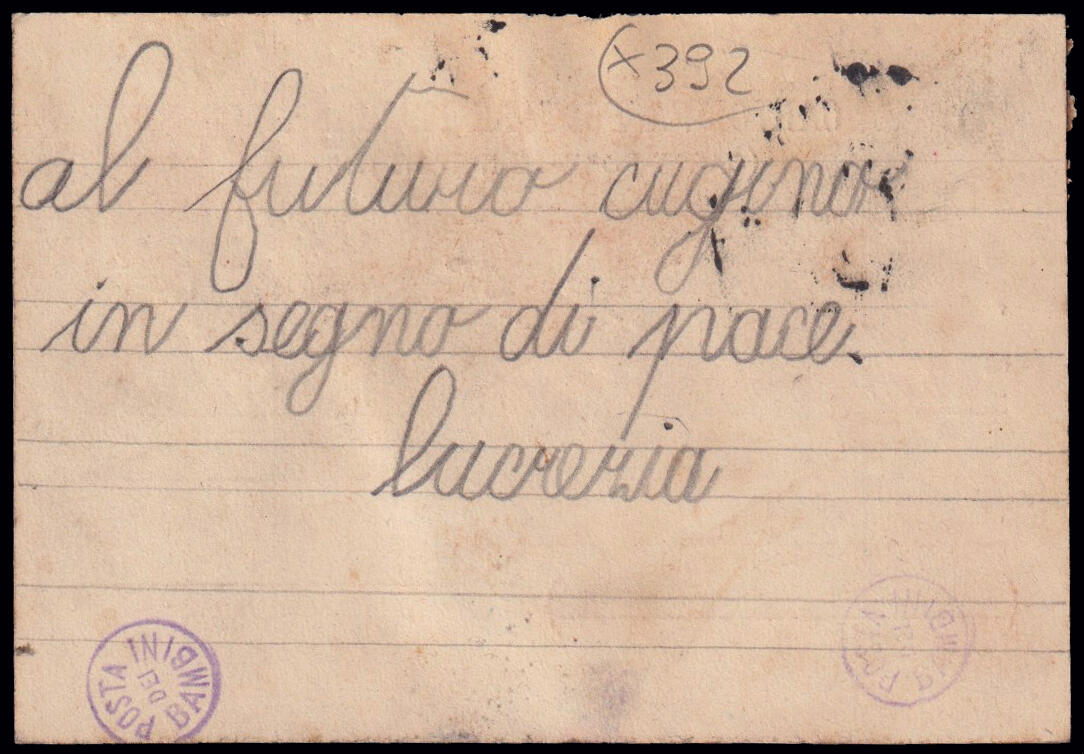 ×392
al futuro cugino
in segno di pace.
lucrezia
POSTA DEI BAMBINI
POSTA DEI BAMBINI